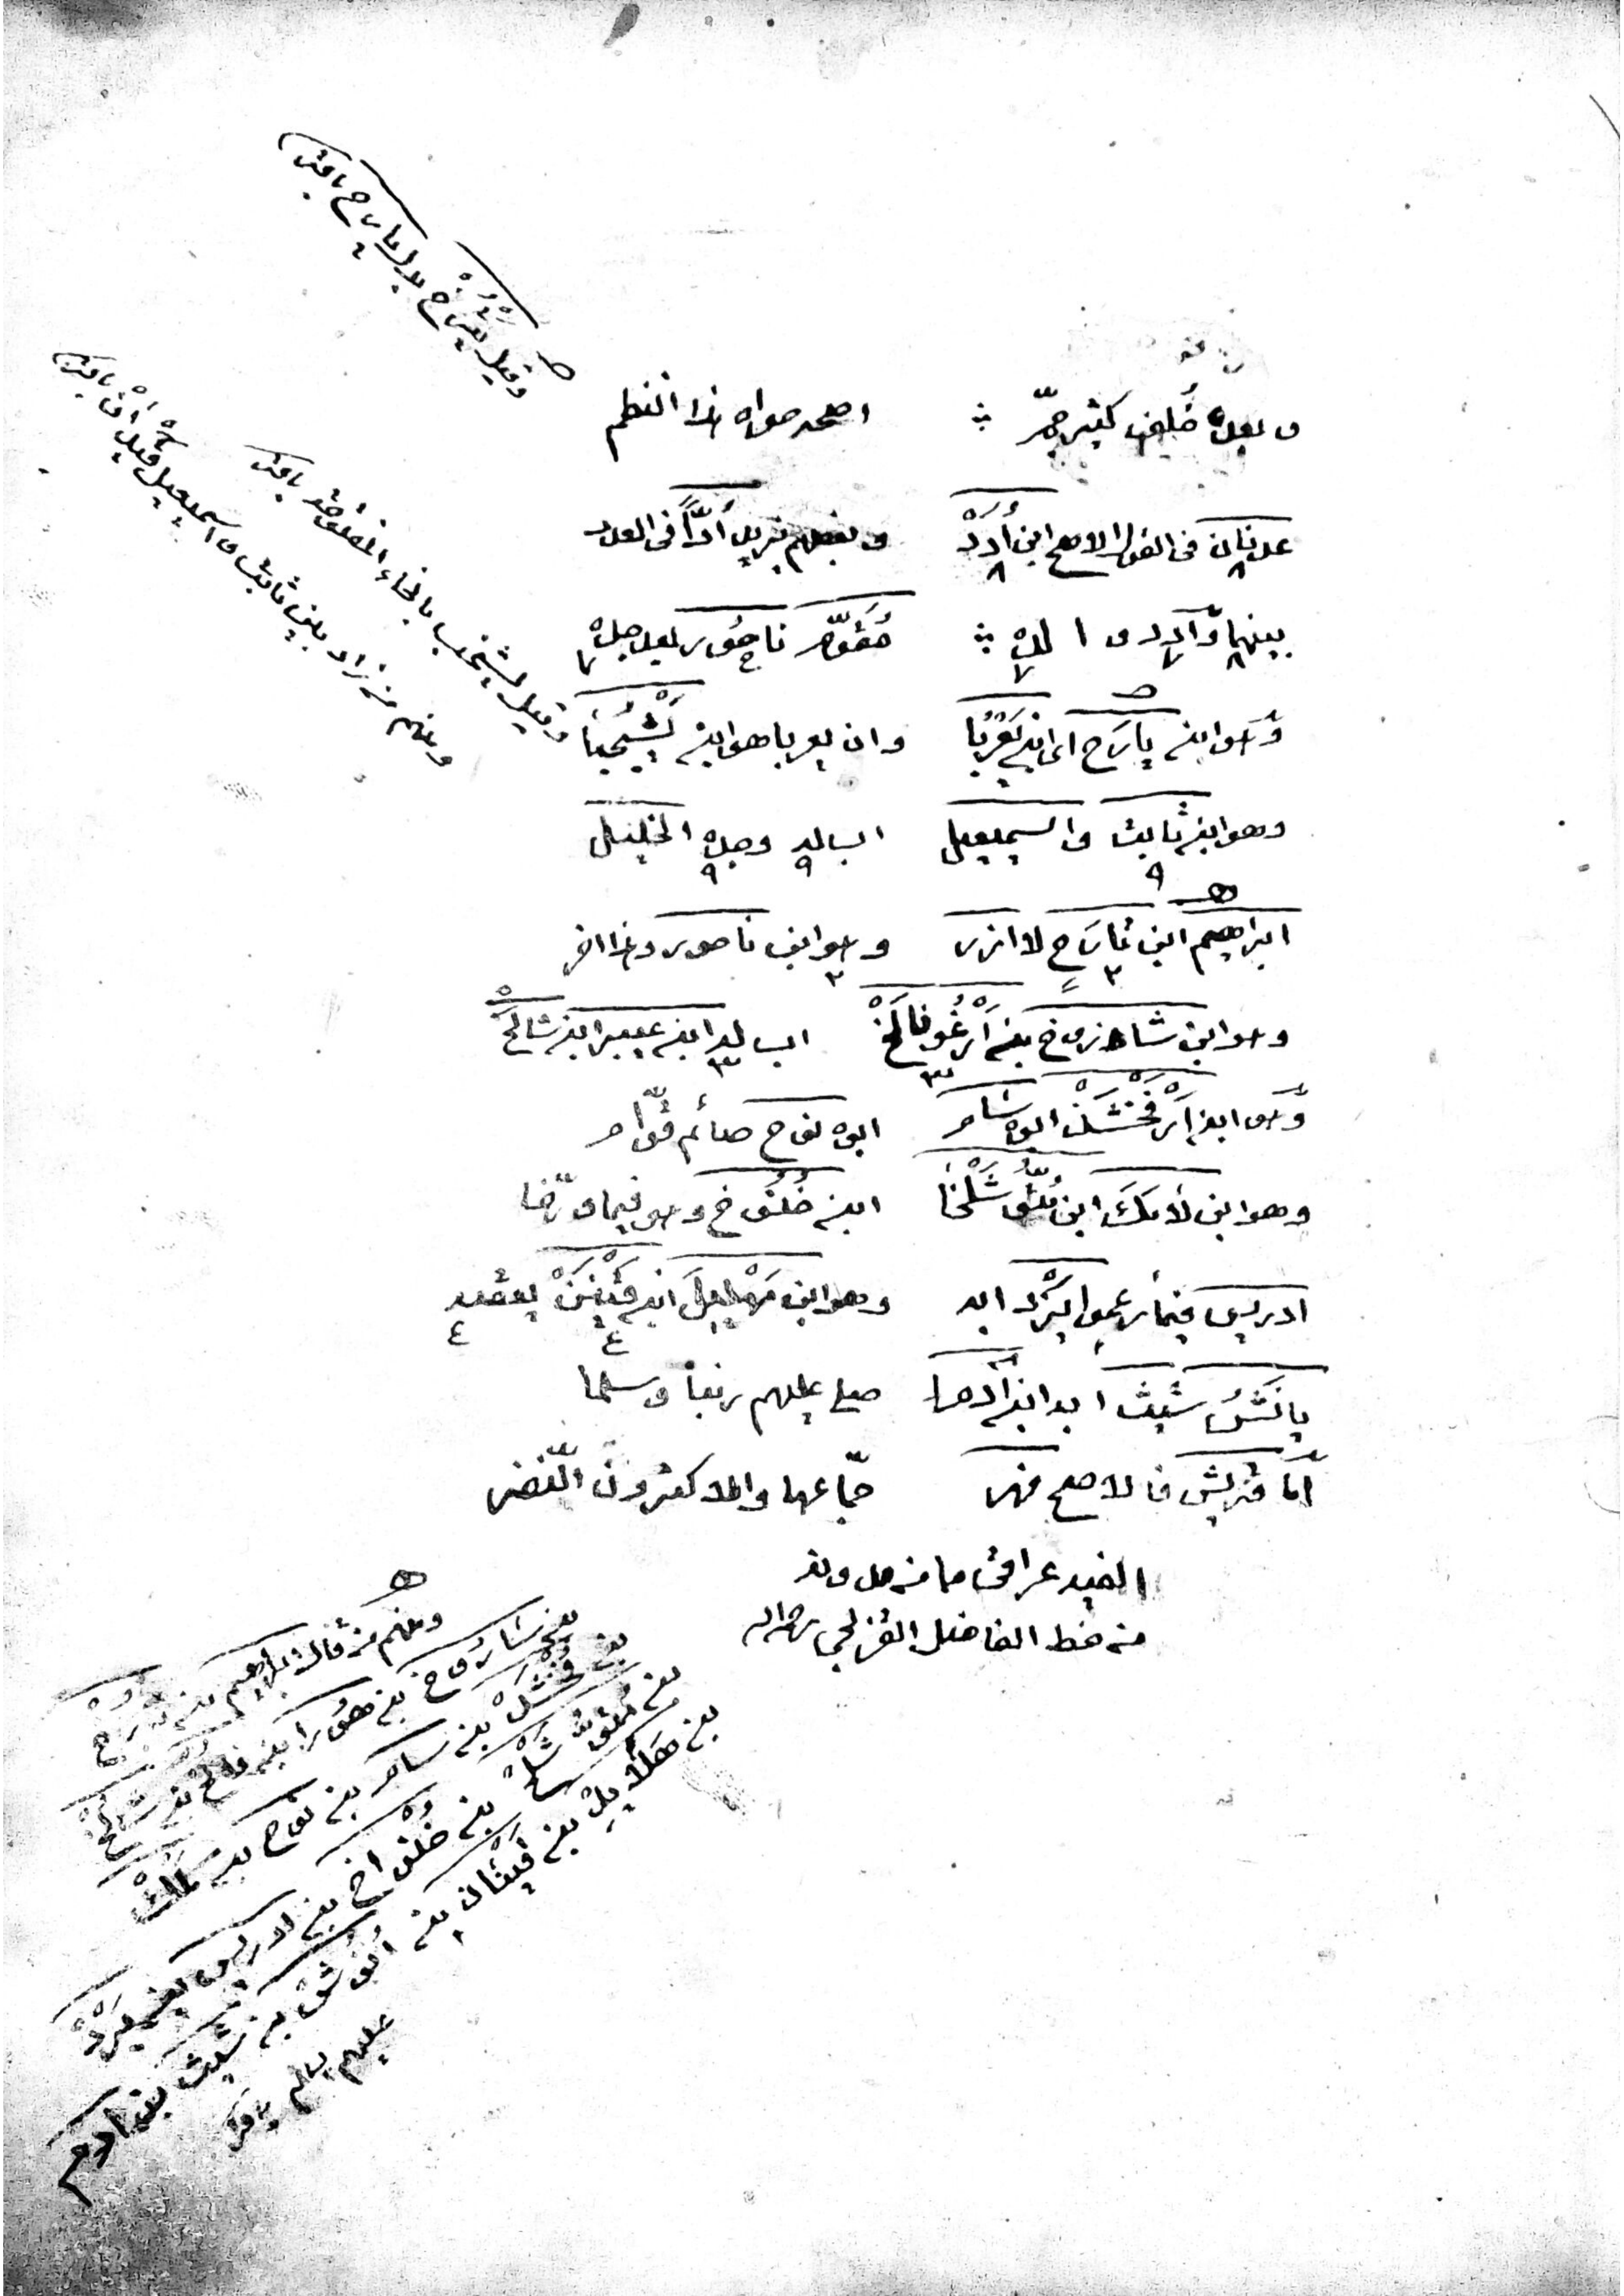 وبعده خلف كثير جم اصحه حواه هذا النظم
عدنان في القول الاصح ابن أدد وبعضهم يزيد أدّاً في العدد
بينهما والدد والده مقوّم ناحور بعد جده
وهو ابن يارح اى ابن يعربا وان يعربا هو ابن يشجبا
وهو ابن ثابت واسمعيل اب له وجده الخليل
ابراهيم ابن تارح لا ازر وهو ابن ناحور وهذا اخر
وهو ابن شاروخ بن ارغو فالخ اب له ابن عيبر ابن شالخ
وهو ابن ارفخشذ ابوه سام ابوه نوح صائم قوّام
وهو ابن لامك ابن متّوشلخا ابن خنوخ وهو فيما ورّخا
ادريس فيما زعموا يرد ابه وهو ابن مهليل ابن قينن يعقبه
يانش شيث ابه ابن آدما صلى عليهم ربنا وسلما
أما قريش فالاصح فهر جمّاعها والاكثرون النّضر
الفيه عراقى
من خط الفاضل القزلجي رحمه الله
وقيل يترح بدل يارح باقر
وقيل يشخب بالخاء المفتوحة باقر
ومنهم من زاد بين ثابت واسمعيل باقر
ومنهم من قال ابراهيم بن تارح
بن شاروخ بن فالخ بن شالخ
بن فخشد بن سام بن نوح بن لمك
بن متوشلخ بن خنواخ بن ادريس بن يرد
بن مهلايل بن قينان بن انوش بن شيث بن ادم
عليهم باقر